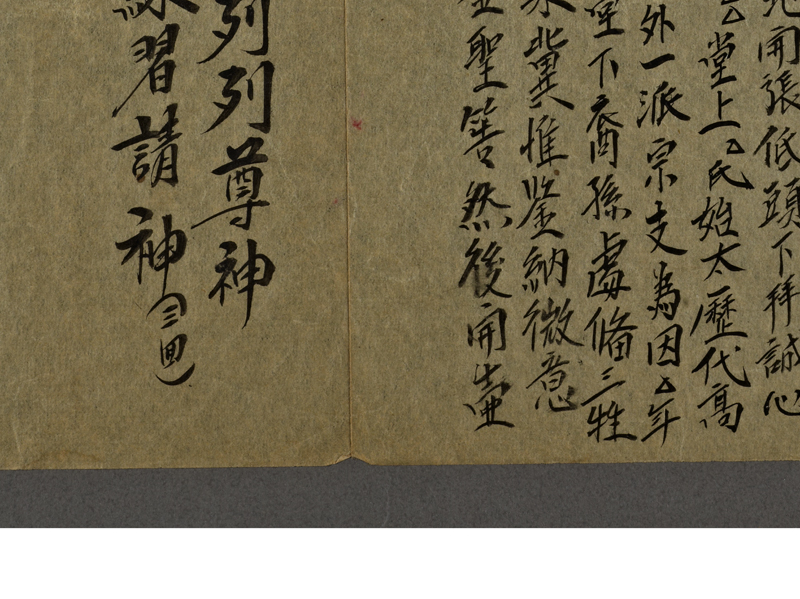 開張低頭下拜誠心
堂上ㄙ氏始太歷代高
外一派宗支為因ㄙ年
下裔孫虔備三牲
冀惟鑒納微意
聖筶然後開壺
列列尊神
習請神(三四)